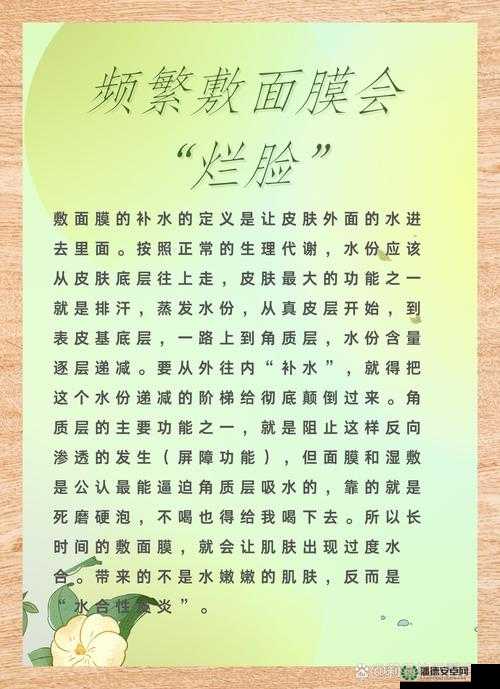 频繁敷面膜会
“烂脸”
敷面膜的补水的定义是让皮肤外面的水进
去里面。按照正常的生理代谢，水份应该
从皮肤底层往上走，皮肤最大的功能之一
就是排汗，蒸发水份，从真皮层开始，到
表皮基底层，一路上到角质层，水份含量
逐层递减。要从外往内“补水”，就得把
这个水份递减的阶梯给彻底颠倒过来。角
质层的主要功能之一，就是阻止这样反向
渗透的发生（屏障功能），但面膜和湿敷
是公认最能逼迫角质层吸水的，靠的就是
死磨硬泡，不喝也得给我喝下去。所以长
时间的敷面膜，就会让肌肤出现过度水
合。带来的不是水嫩嫩的肌肤，反而是
“水合性皮炎”。
潘德安卓网